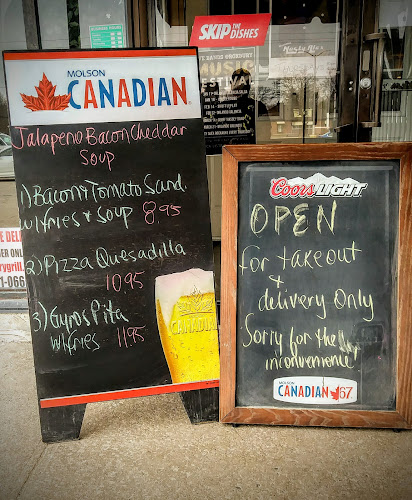 SKIP THE
DISHES
MOLSON
CANADIAN
Jalapeno Bacon Cheddar
Soup
1) Bacon & Tomato Sand.
w/ fries & soup 8.95
2) Pizza Quesadilla
10.95
3) Gyros Pita
w/ fries 11.95
CANADIAN
Coors LIGHT
OPEN
for takeout
&
delivery Only
Sorry for the
inconvenience
MOLSON
CANADIAN 67